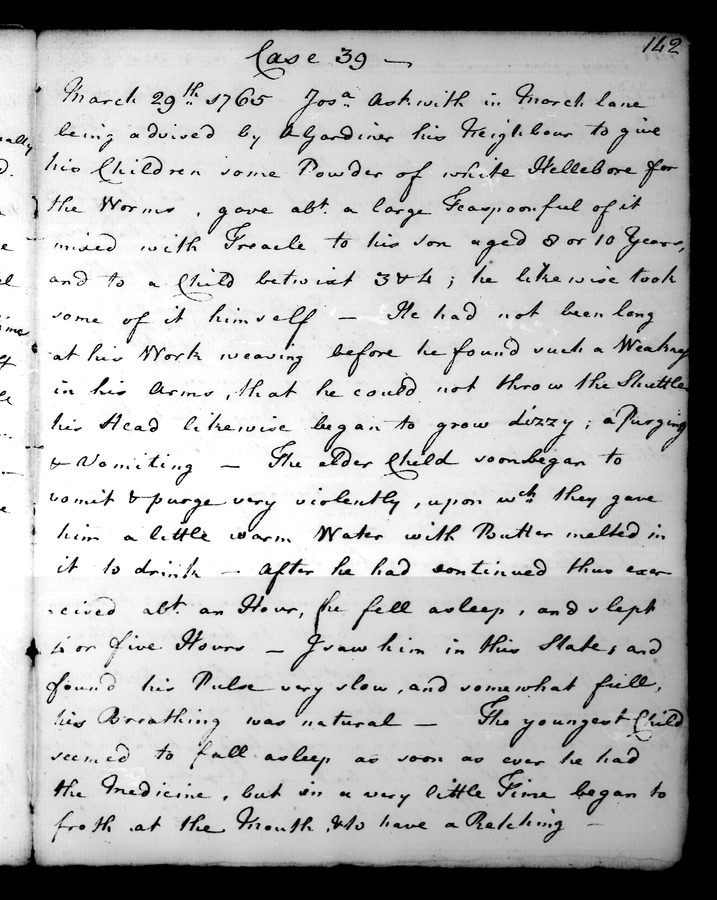 142
Case 39 —
March 29th 1765 Josa. Askwith in March lane
being advised by A Gardiner his Neighbour to give
his Children some Powder of white Hellebore for
the Worms, gave abt. a large Teaspoonful of it
mixed with Treacle to his son aged 8 or 10 Years,
and to a Child betwixt 3 & 4; he likewise took
some of it himself — He had not been long
at his Work weaving before he found such a Weakness
in his Arms, that he could not throw the Shuttle
his Head likewise began to grow dizzy; a Purging
& Vomiting — The elder Child soon began to
vomit & purge very violently, upon wch. they gave
him a little warm Water with Butter melted in
it to drink — After he had continued thus exer-
cised abt. an Hour, he fell asleep, and slept
4 or five Hours — I saw him in this State, and
found his Pulse very slow, and somewhat full,
his Breathing was natural — The youngest Child
seemed to fall asleep as soon as ever he had
the Medicine, but in a very little Time began to
froth at the Mouth, & to have a Retching —